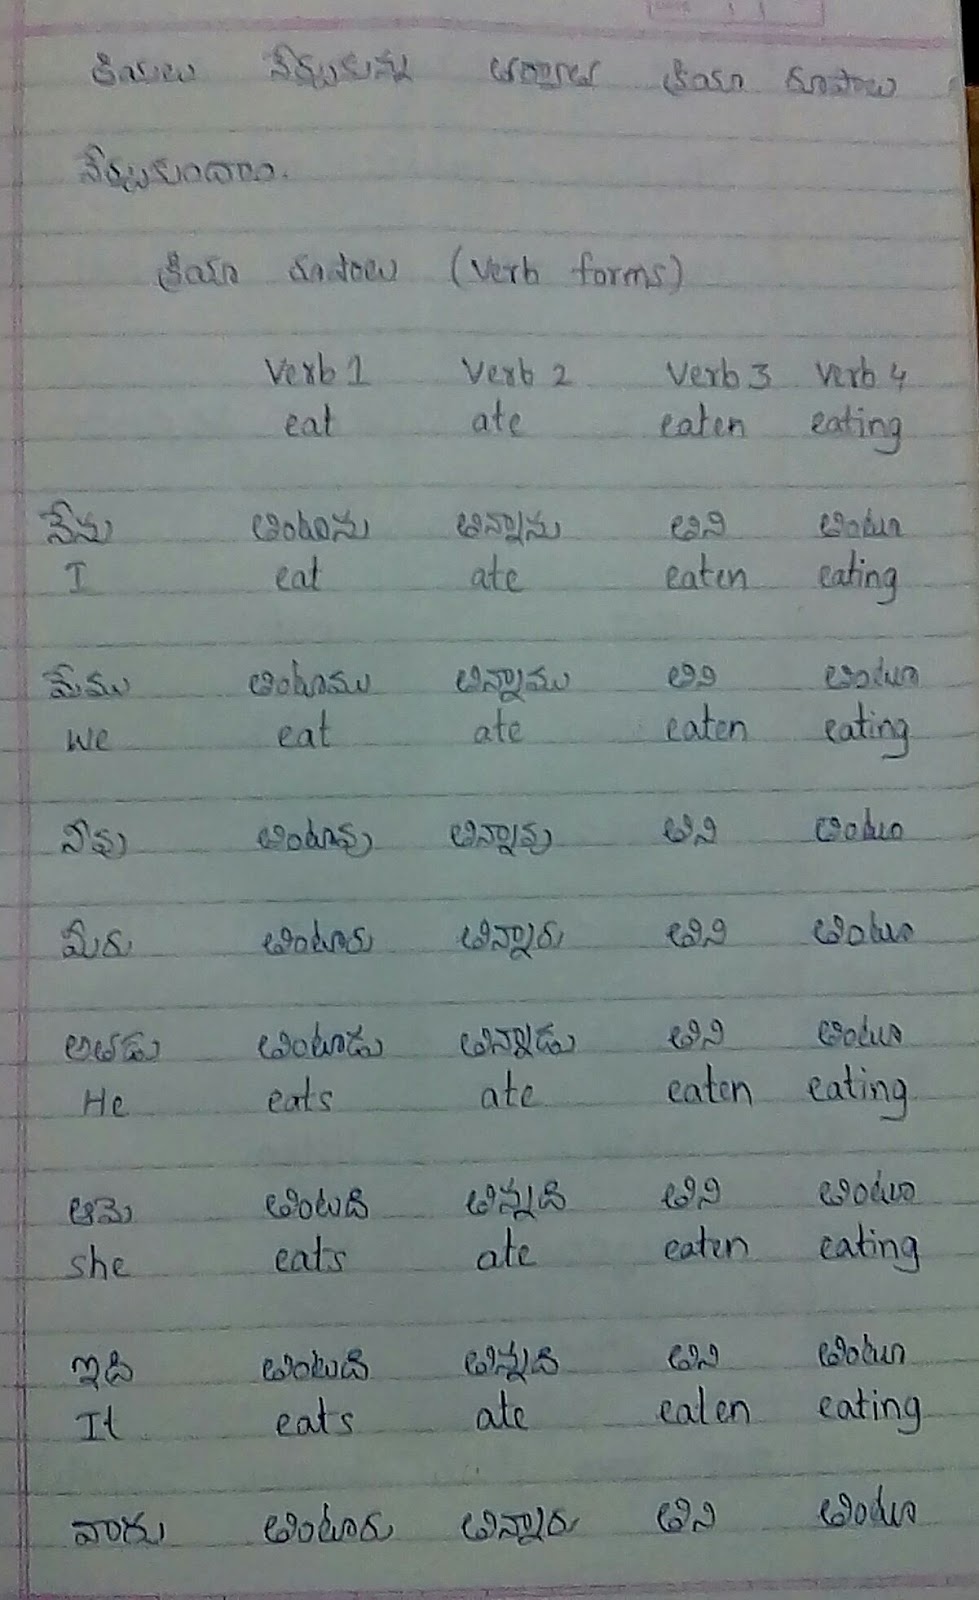 క్రియలు నేర్చుకున్న తర్వాత క్రియా రూపాలు
నేర్చుకుందాం.
క్రియా రూపాలు (Verb forms)
Verb 1 Verb 2 Verb 3 Verb 4
eat ate eaten eating
నేను తింటాను తిన్నాను తిని తింటూ
I eat ate eaten eating
మేము తింటాము తిన్నాము తిని తింటూ
We eat ate eaten eating
నీవు తింటావు తిన్నావు తిని తింటూ
మీరు తింటారు తిన్నారు తిని తింటూ
అతడు తింటాడు తిన్నాడు తిని తింటూ
He eats ate eaten eating
ఆమె తింటుది తిన్నుది తిని తింటూ
She eats ate eaten eating
ఇది తింటుది తిన్నుది తిని తింటూ
It eats ate eaten eating
వారు తింటారు తిన్నారు తిని తింటూ